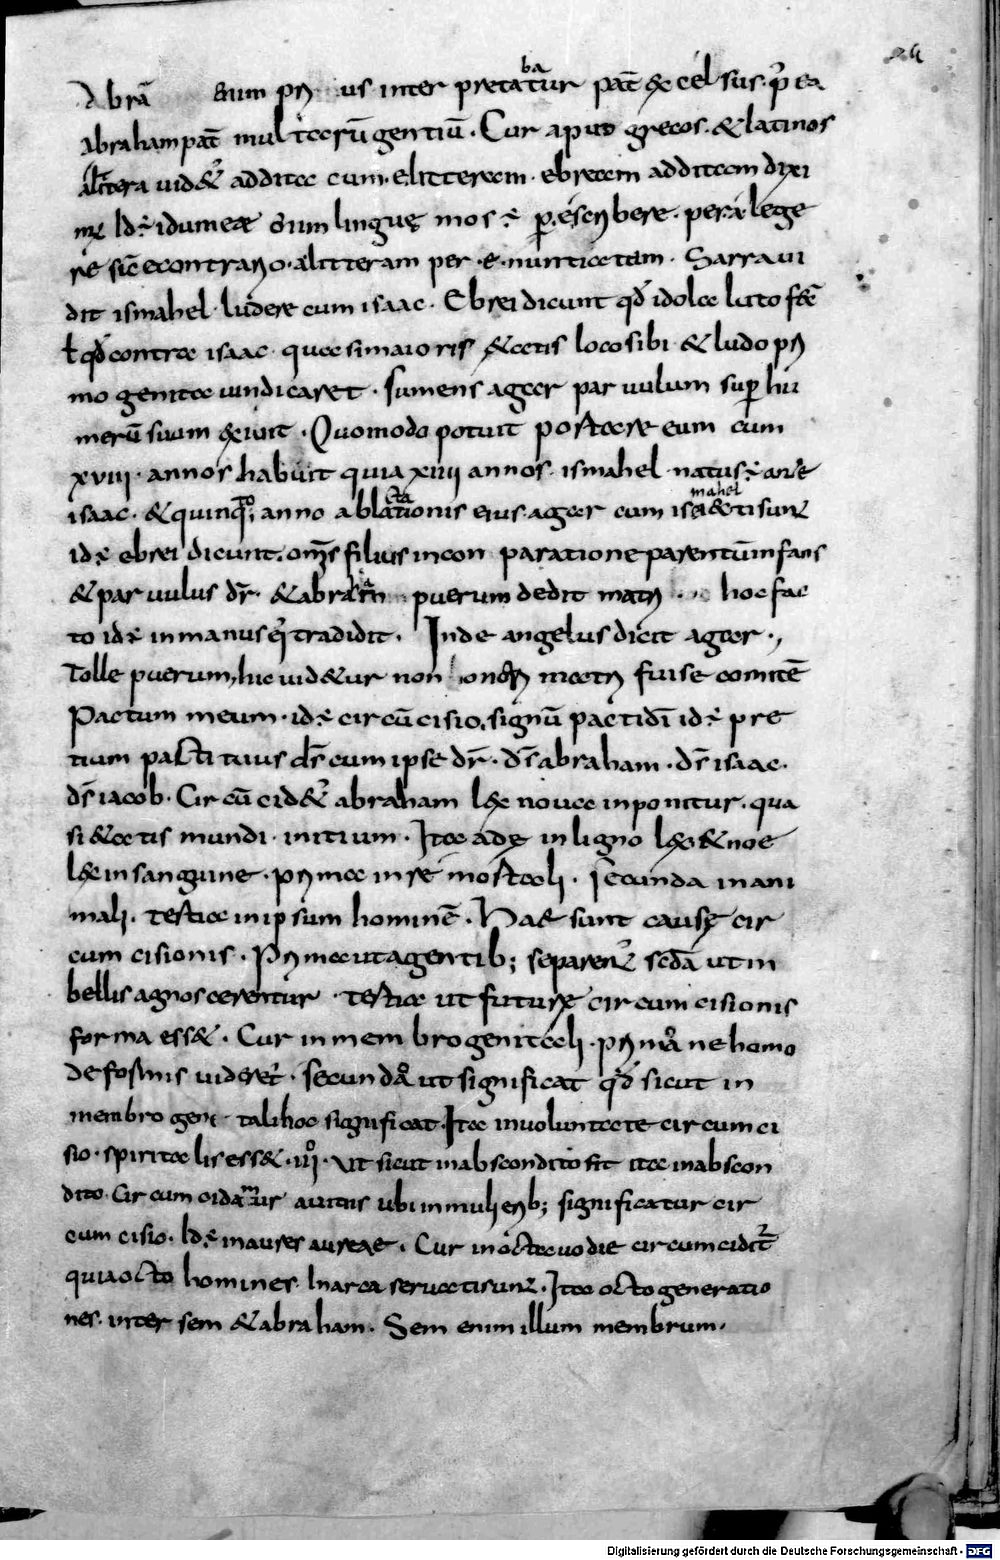 24
Abrā enim pri us inter preta ba tur pat̄ excel sus. p̄ ea
Abraham pat̄ multorū gentiū. Cur apud grecos. & latinos
A littera uidet̄ addita cum. e litteram. ebream additam dixi
mꝰ Id ē idumeae enim linguę mos ē. p. e scribere. per a lege
re sic econtrario. a litteram per. e. nuntiatam. Sarra ui
dit ismahel ludere cum isaac. Ebrei dicunt qđ idola luto fec̄
ł qđ contra isaac quasi maioris &atis loco sibi & ludo pri
mo genita uindicaret. Sumens agar par uulum sup hu
merū suum exiuit. Quomodo potuit postare eum cum
xviii. annos habuit quia xiiii annos ismahel natus ē ante
isaac. & quinto; anno ablactationis eius agar cum ismahel &iecti sunt
id ē ebrei dicunt. om̄s filius incon paratione parentū infans
& par uulus dr̄. & abraham puerum dedit matri hoc fac
to id ē in manus ei tradidit. Inde angelus dicit agar.,
Tolle puerum, hic uid&ur non honori matri fuise comitē
Pactum meum. id ē circūcisio. signū pacti dī id ē pre
tium pacti tuius ds̄ cum ipse dr̄. ds̄ abraham. ds̄ isaac.
ds̄ iacob. Circūcidet̄ abraham lex noua inponitur. qua
si &atis mundi initium. Ita adę in ligno lex & noe
lex in sangune. prima in re mostali. Secunda in ani
mali. testia in ipsum hominē. Hae sunt causę cir
cum cisionis. Prima ut agentib; separent̄ scđa ut in
bellis agnoscerentur. testia ut futurę circumcisionis
forma ess&. Cur in mem bro genitali. primā ne homo
deformis uideret̄. secundā ut significat qđ sicut in
membro geni tali hoc significat. Ita inuoluntate circumci
sio. spiritalis ess&. iiii. ut sicut in abscondito fit ita in abscon
dito. Circumcidamur auitiis ubi in mulierib; significatur cir
cum cisio. Id ē in aures aureae. Cur in octauo die circumcidit̄
quia octo homines. In arca seruati sunt. Ita octo generatio
nes. inter sem & abraham. Sem enim illum membrum.
Digitalisierung gefördert durch die Deutsche Forschungsgemeinschaft - DFG